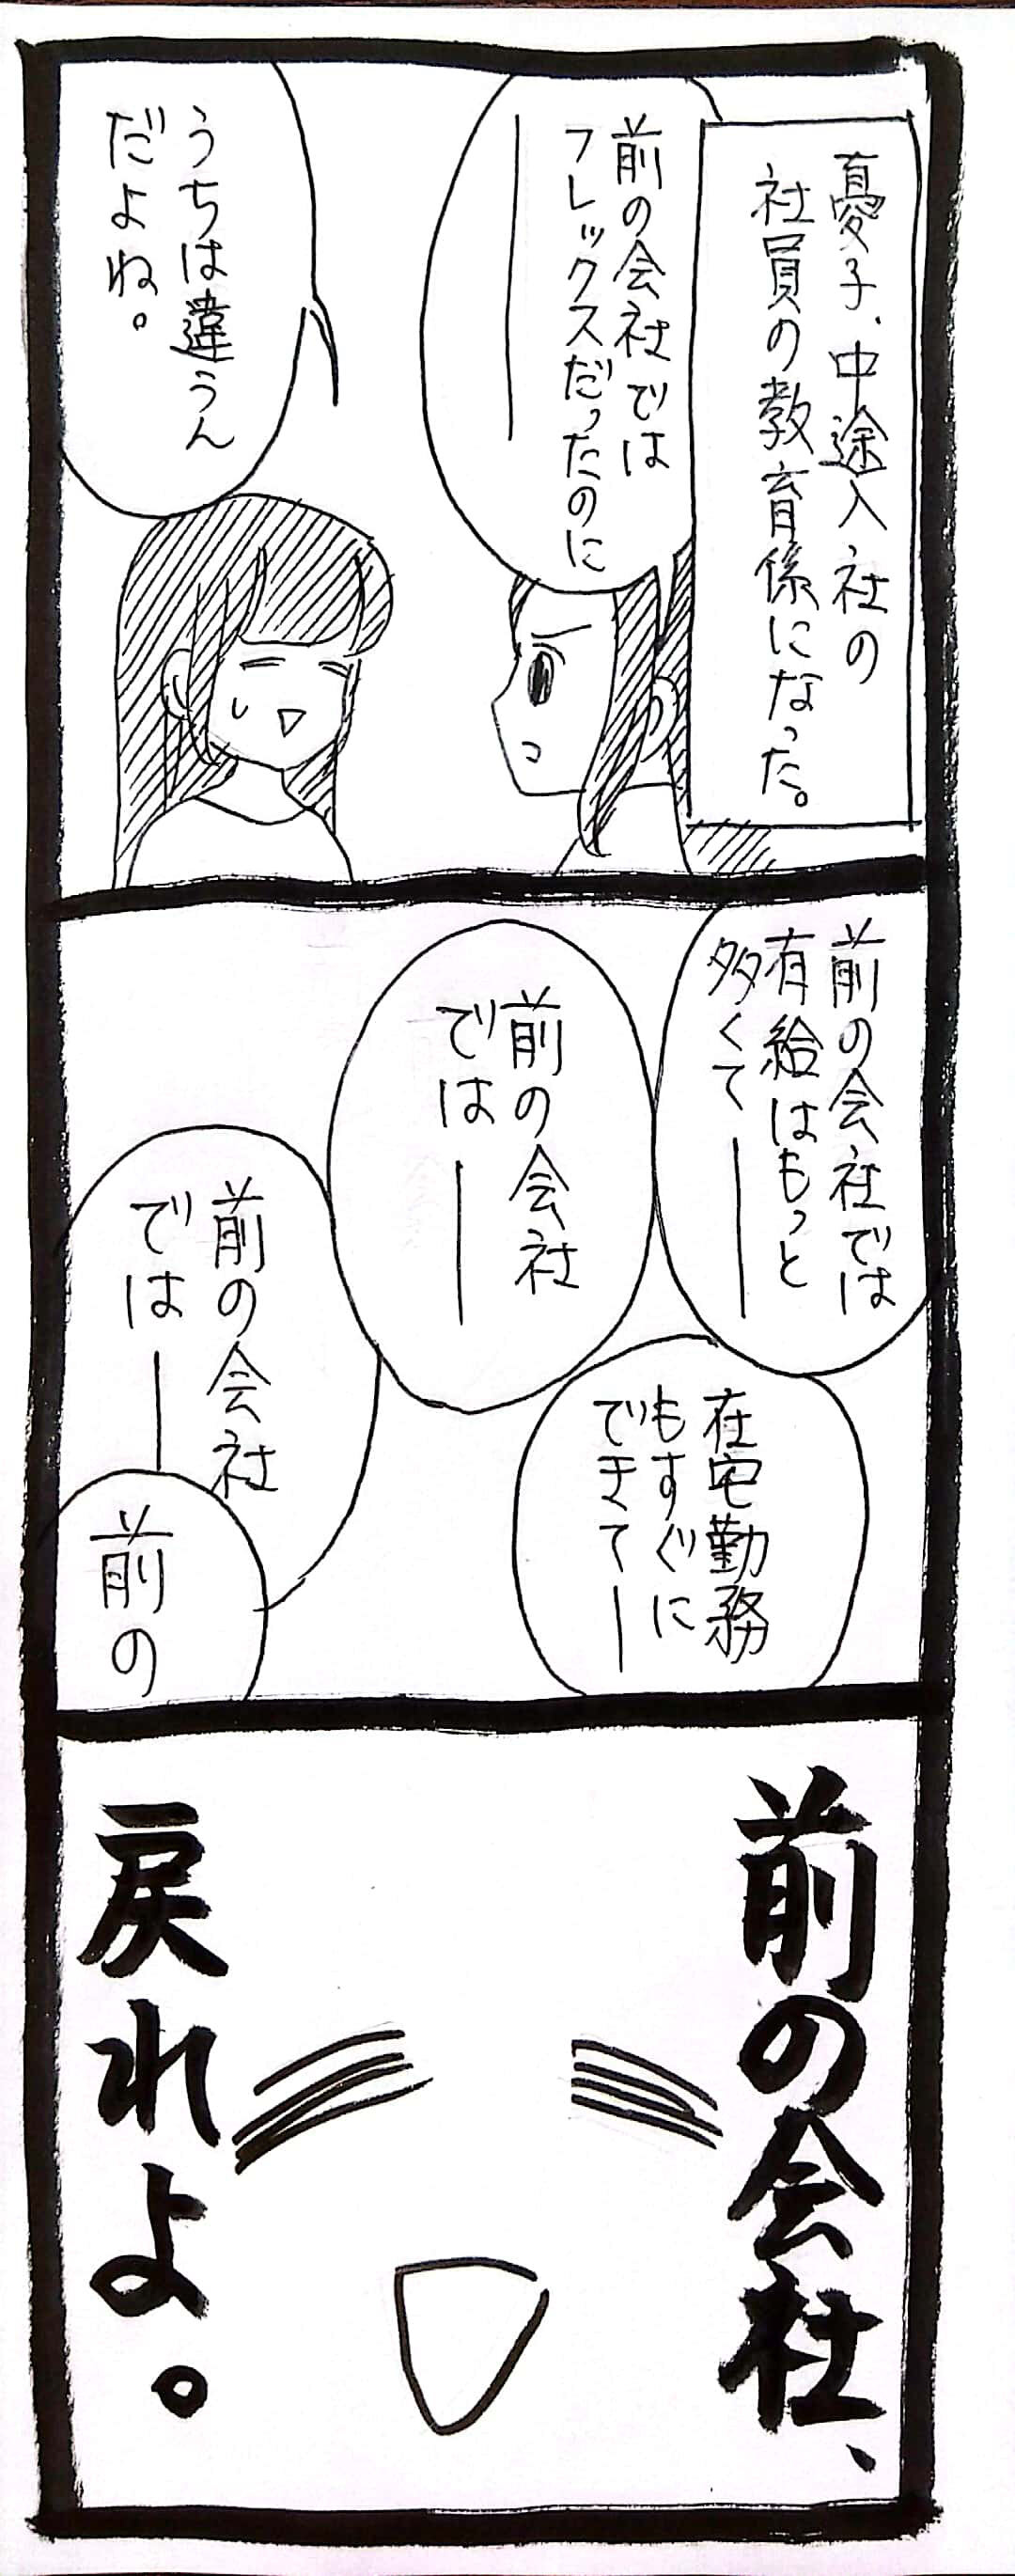 憂子、中途入社の
社員の教育係になった。
前の会社では
フレックスだったのに
―
うちは違うん
だよね。
前の会社では
有給はもっと
多くて―
在宅勤務
もすぐに
できて―
前の会社
では―
前の会社
では―
前の
前の会社、
戻れよ。